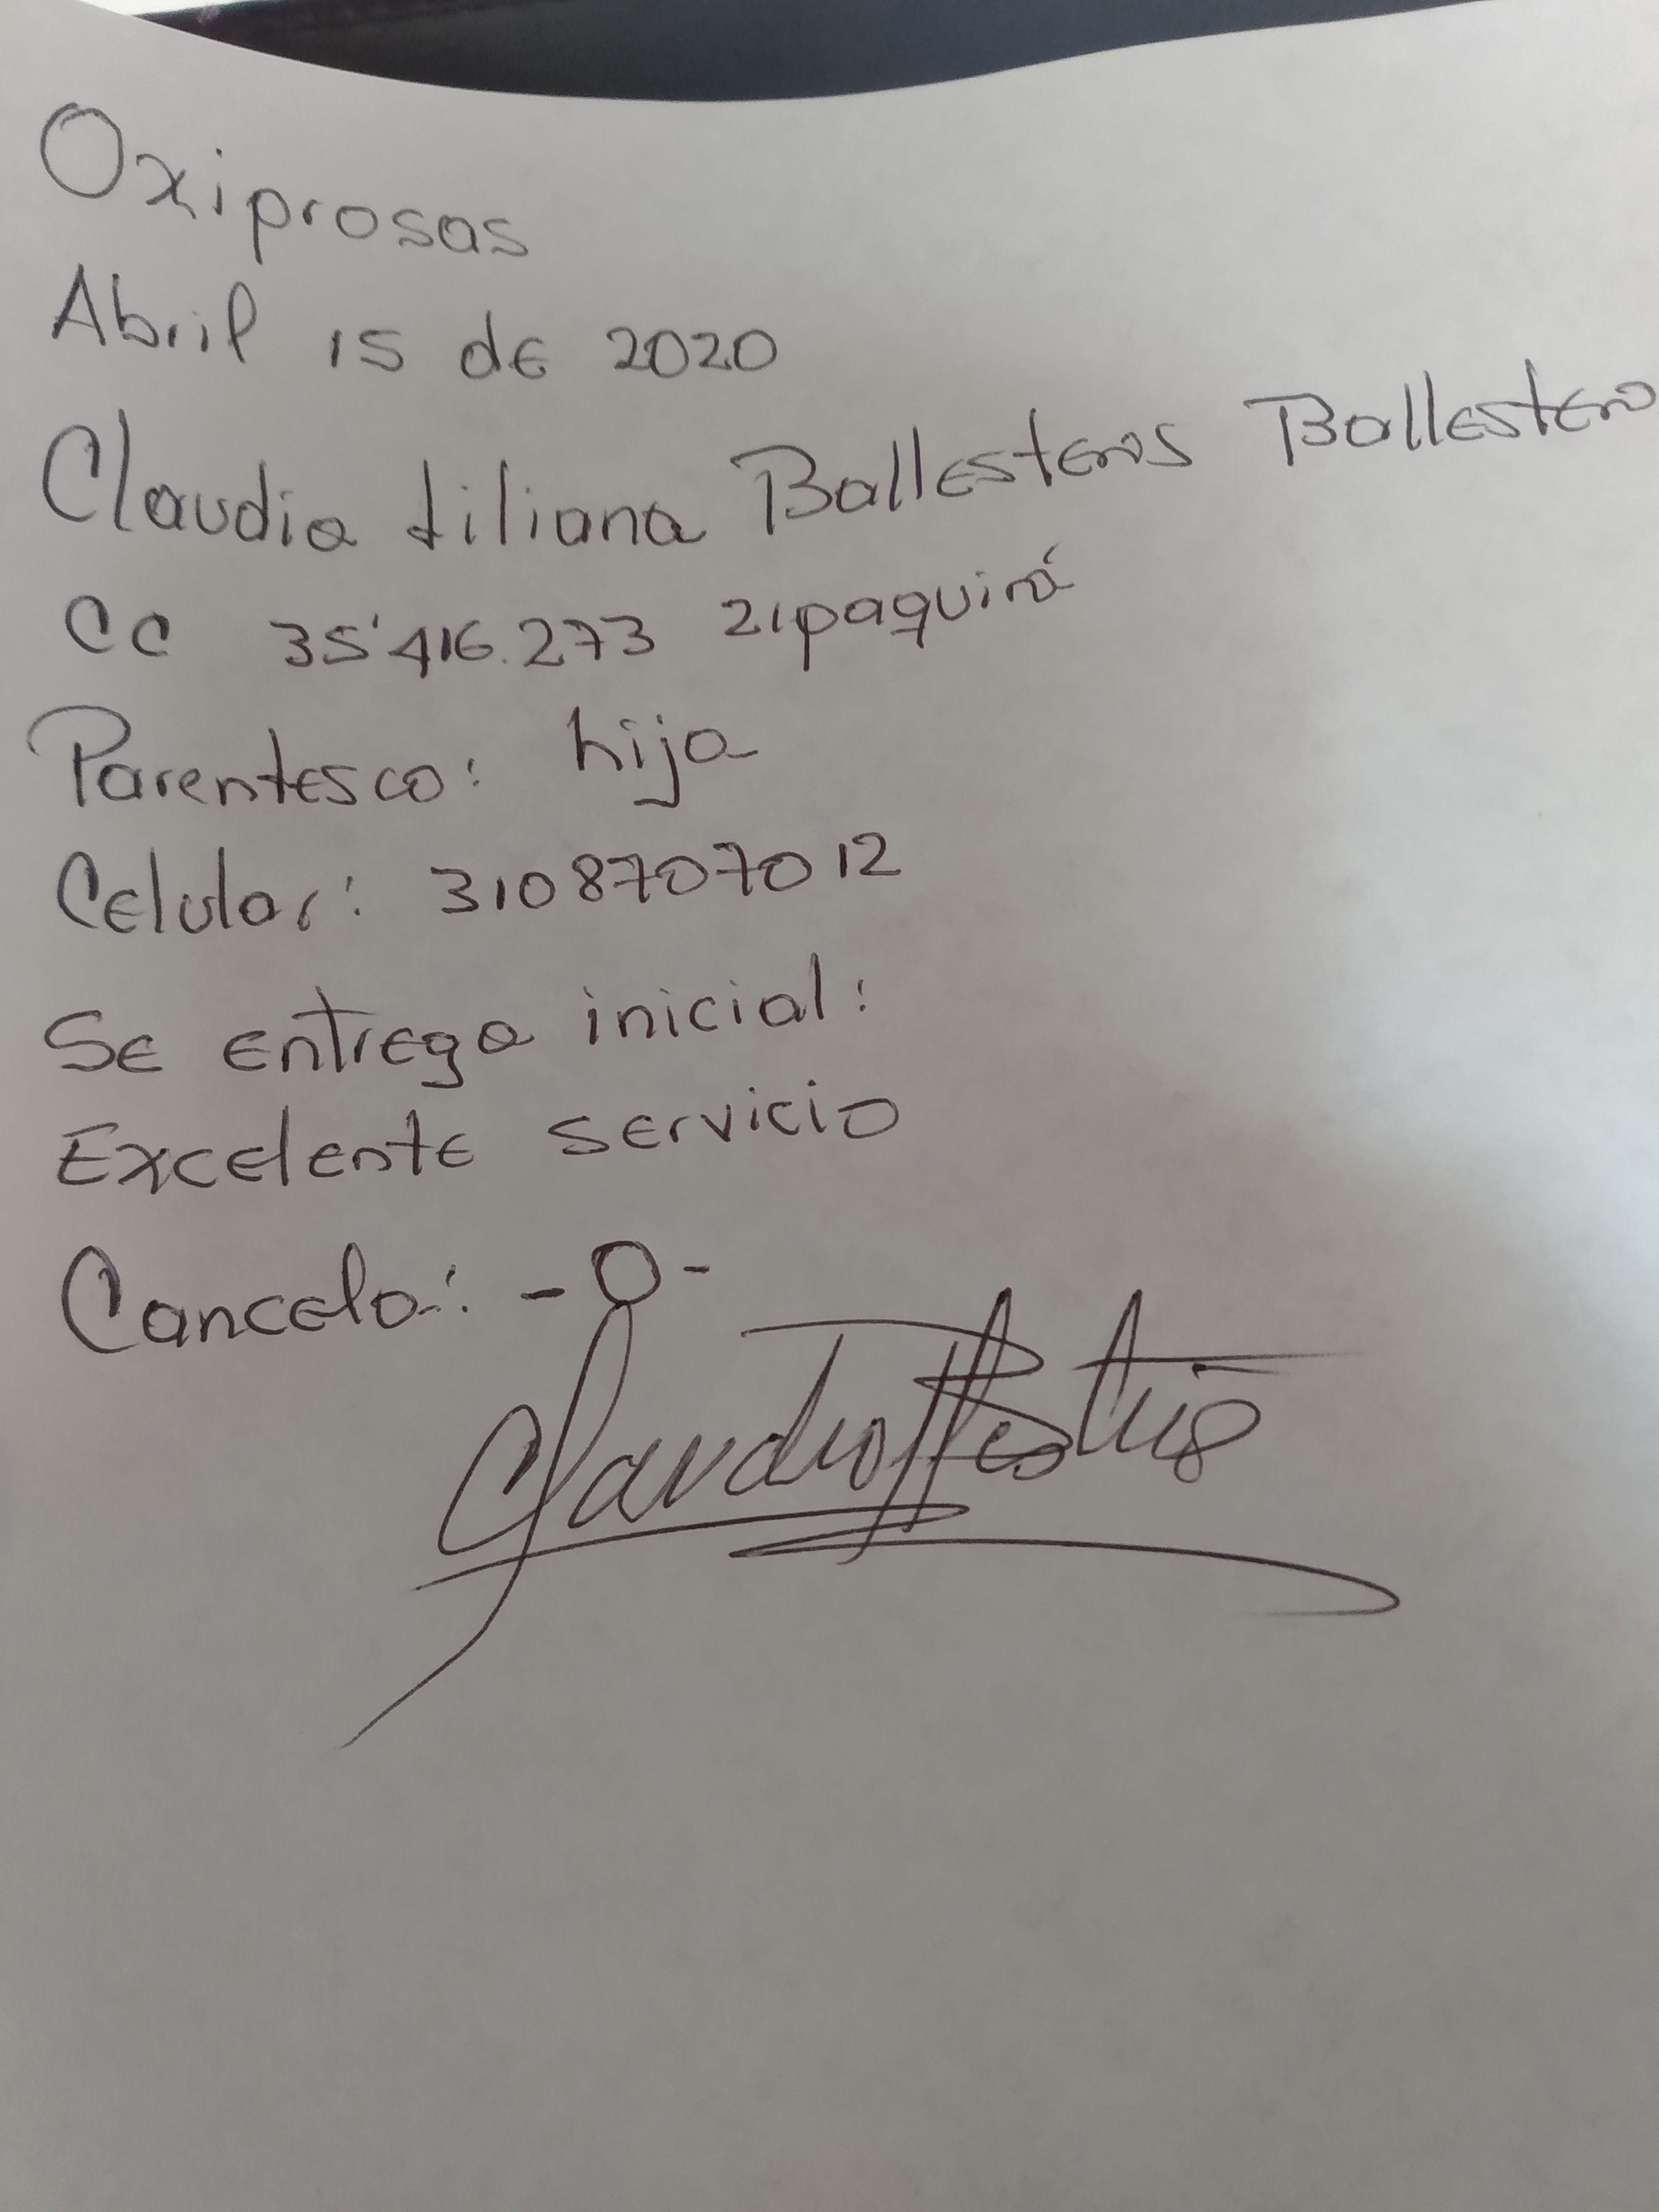 Oxiprosas
Abril 15 de 2020
Claudia Liliana Ballesteros Ballestero
CC 35'416.273 Zipaquirá
Parentesco: hija
Celular: 3108707012
Se entrega inicial:
Excelente servicio
Cancelo: -0-